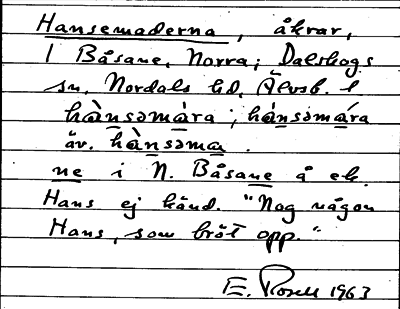 Hansemaderna, åkrar,
I Båsane, Norra; Dalskogs
sn. Nordals hd. Älvsb. l
hànsəmàra; hánsəmára
äv. hànsəma.
ne i N. Båsane å ek.
Hans ej känd. "Nog någon
Hans, som bröt opp."
E. Rosell 1963